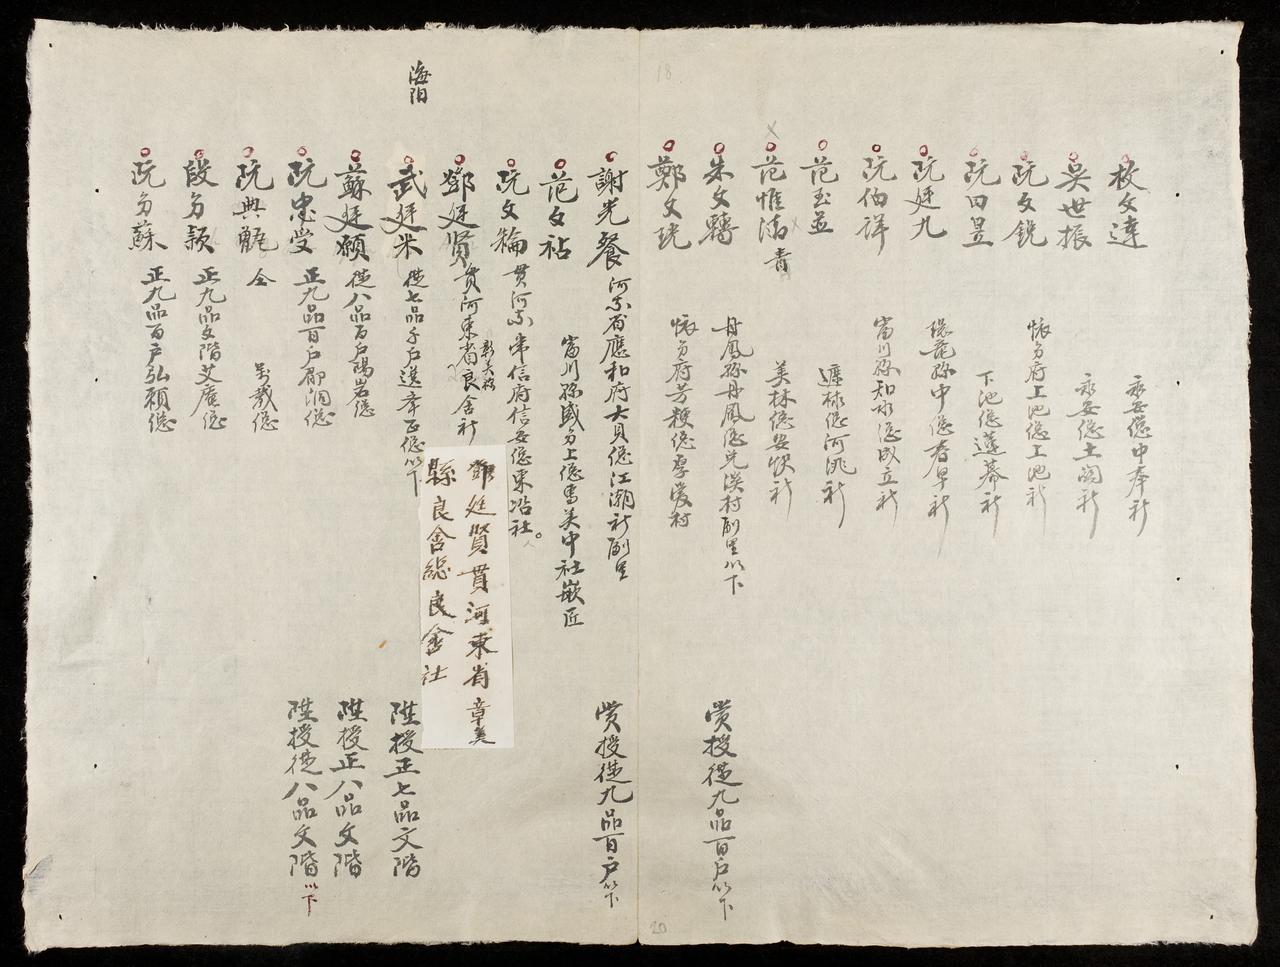 18
枚文達 永安總中奉社
吳世振 永安總土閣社
阮文銳 懷分府上池總上池社
阮田昱 下池總蓮幕社
阮廷九 中總春早社
阮伯詳 富川縣知水總成立社
范玉並 總河洮社
范惟清 青 美林總安快社
朱文轉 丹鳳縣丹鳳總先淡村副里以下 賞授從九品百户以下
鄭文珖 懷分府芳粳總厚愛村
謝光餐 河東省應和府大貝總江潮社副里 賞授從九品百户以下
范文祜 富川縣盛分上總常美中社嵌匠
阮文輪 貫河東常信府信安總東沿社。
鄧廷贤 貫河東省彰美縣良舍社
鄧廷賢貫河東省章美
縣良舍總良舍社
海陽
武廷米 從七品千户選幸正總以下 陞授正七品文階
蘇廷願 從八品百户陽岩總 陞授正八品文階
阮忠受 正九品百户郡洞總 陞授從八品文階以下
阮典 仝 萬歲總
段分頴 正九品文階艾庵總
阮分蘇 正九品百户弘頼總
20